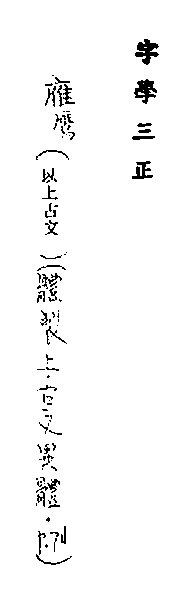 字學三正
鷹(以上古文)(體製上·古文異體·例)